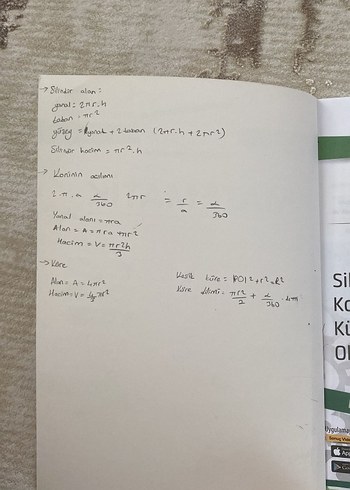 → Silindir alan:
yanal = 2πr.h
taban = πr²
yüzey = yanal + 2 taban (2πr.h + 2πr²)
Silindir hacim = πr².h
→ Koninin açılımı
2.π.a α/360 2πr = r/a = α/360
Yanal alanı = πra
Alan = A = πra + πr²
Hacim = V = πr²h/3
→ Küre
Alan = A = 4πr²
Hacim = V = 4/3 πr³
Kesik küre = |PO|² + r² = R²
Küre dilimi = πr²/2 + α/360 . 4π
Sil
Ko
Kü
Ol
Uygulama
App